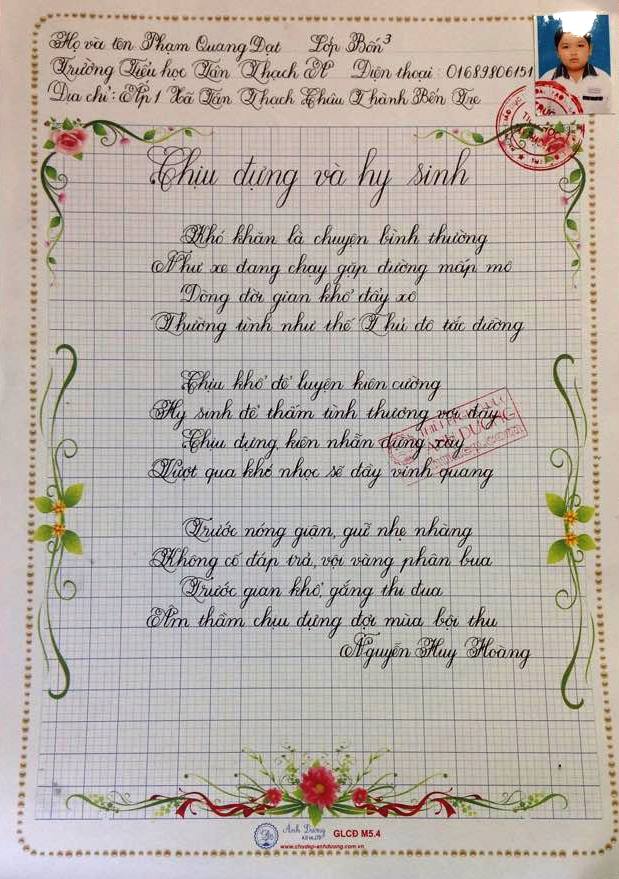 Họ và tên Phạm Quang Đạt Lớp Bốn³
Trường Tiểu học Tân Thạch A Điện thoại: 01689806151
Địa chỉ: Ấp 1 Xã Tân Thạch Châu Thành Bến Tre
Chịu đựng và hy sinh
Khó khăn là chuyện bình thường
Như xe đang chạy gặp đường mấp mô
Dòng đời gian khổ đẩy xô
Thường tình như thế Thủ đô tắc đường
Chịu khổ để luyện kiên cường
Hy sinh để thấm tình thương vơi đầy
Chịu đựng, kiên nhẫn dựng xây
Vượt qua khó nhọc sẽ đầy vinh quang
Trước nóng giận, giữ nhẹ nhàng
Không cố đáp trả, vội vàng phân bua
Trước gian khổ, gắng thi đua
Âm thầm chịu đựng đợi mùa bội thu
Nguyễn Huy Hoàng
ÁNH DƯƠNG
Ánh Dương
GLCĐ M5.4
www.chudep-anhduong.com.vn